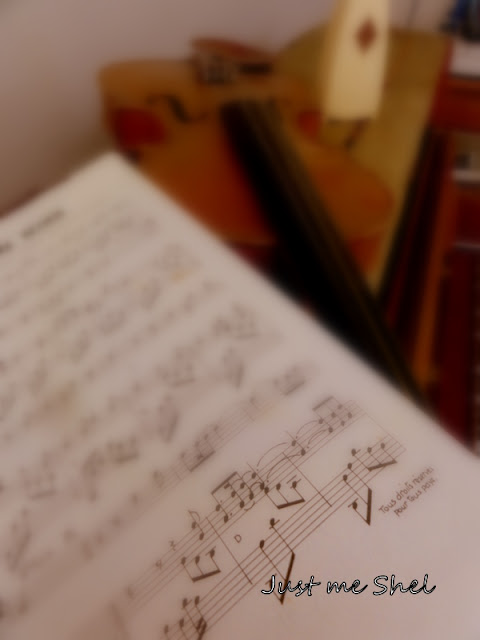 D
Tous droits réservés
pour tous pays
Just me Shel